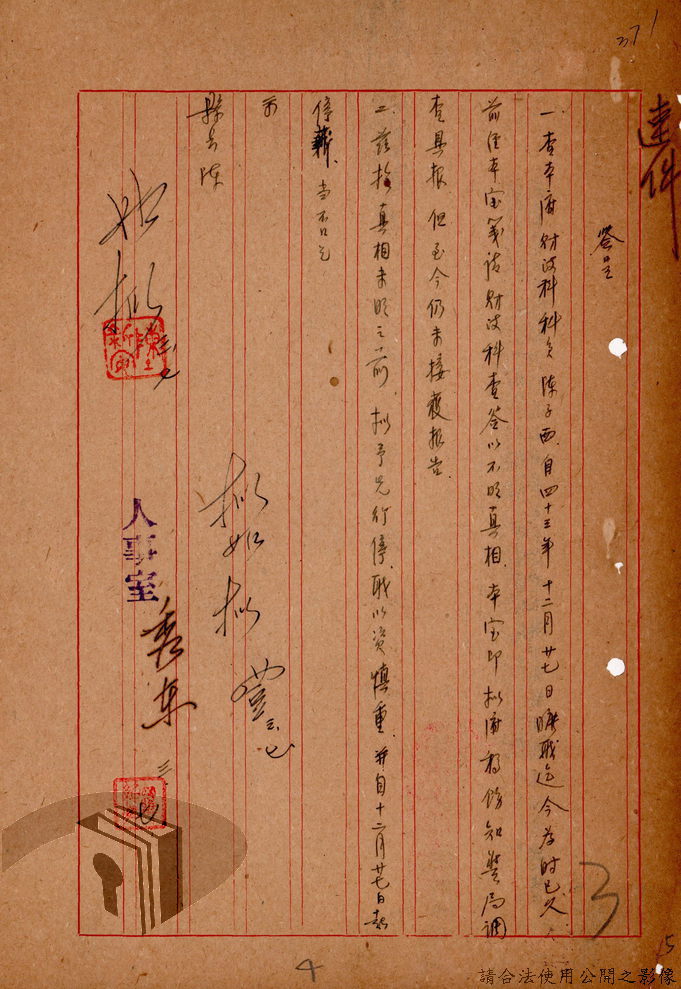 速件
簽呈
一、查本府財政科科員陳子西自四十三年十二月廿七日曠職迄今為時已久
前經本室箋請財政科查簽以不明真相本室即擬府稿飭知警局調
查具報但至今仍未接獲報告
二、茲於真相未明之前擬予先行停職以資慎重并自十二月廿七日起
停薪當否乞
示
縣長陳
擬如擬
三、七
如擬
三、七
人事室
三
七
371
3
4
15
請合法使用公開之影像